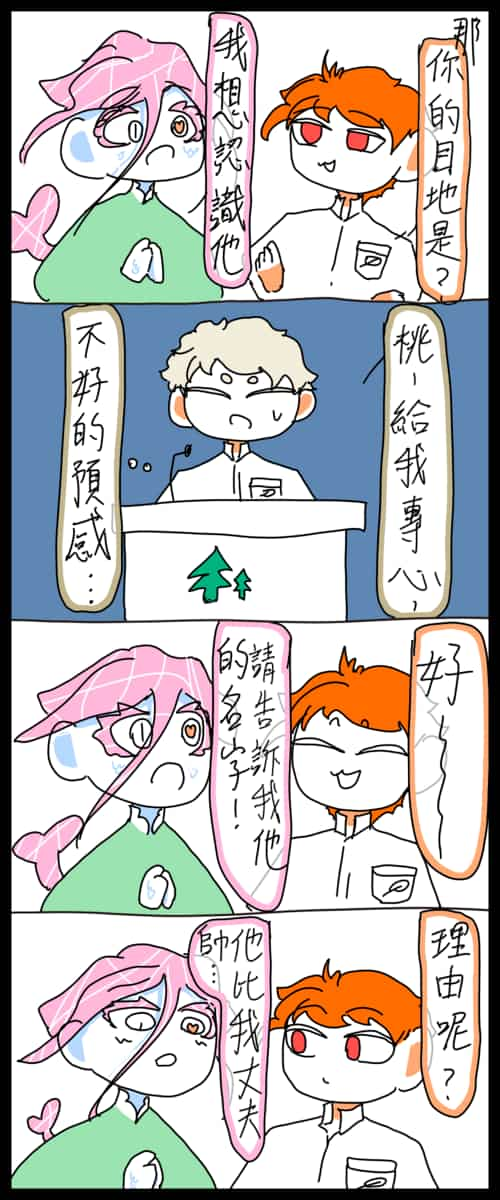 那
你的目地是？
我想認識他
桃－給我專心，
不好的預感…
好～
請告訴我他
的名字！
理由呢？
他比我丈夫
帥…